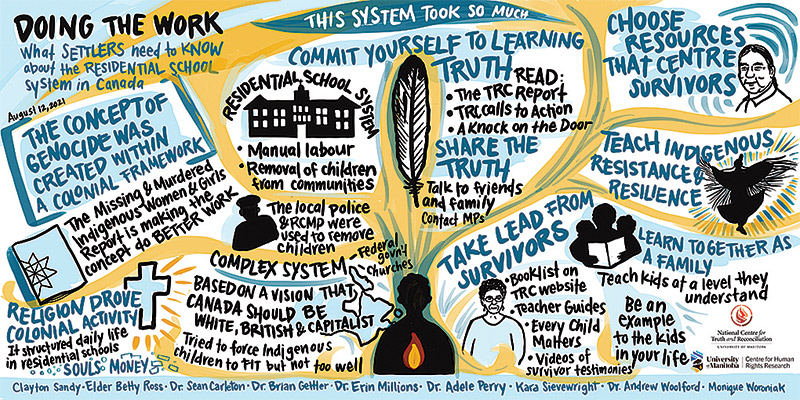 DOING THE WORK
What SETTLERS need to KNOW
about the RESIDENTIAL SCHOOL
System in Canada
August 12, 2021
THIS SYSTEM TOOK SO MUCH
THE CONCEPT OF
GENOCIDE WAS
CREATED WITHIN
A COLONIAL FRAMEWORK
The Missing & Murdered
Indigenous Women & Girls
Report is making the
concept do BETTER WORK
RELIGION DROVE
COLONIAL ACTIVITY
It structured daily life
in residential schools
SOULS MONEY
RESIDENTIAL SCHOOL SYSTEM
• Manual labour
• Removal of children
from communities
The local police
& RCMP were
used to remove
children
COMPLEX SYSTEM
Federal
gov't
Churches
BASED ON A VISION THAT
CANADA SHOULD BE
WHITE, BRITISH & CAPITALIST
Tried to force Indigenous
children to FIT but not too well
COMMIT YOURSELF TO LEARNING
TRUTH
READ:
• The TRC Report
• TRC Calls to Action
• A Knock on the Door
SHARE THE
TRUTH
Talk to friends
and family
Contact MPs
TAKE LEAD FROM
SURVIVORS
• Booklist on
TRC website
• Teacher Guides
• Every Child
Matters
• Videos of
survivor testimonies
CHOOSE
RESOURCES
THAT CENTRE
SURVIVORS
TEACH INDIGENOUS
RESISTANCE &
RESILIENCE
LEARN TOGETHER AS
A FAMILY
Teach kids at a level they
understand
Be an
example
to the kids
in your life
National Centre for
Truth and Reconciliation
UNIVERSITY OF MANITOBA
University
of Manitoba
Centre for Human
Rights Research
Clayton Sandy • Elder Betty Ross • Dr. Sean Carleton • Dr. Brian Gettler • Dr. Erin Millions • Dr. Adele Perry • Kara Sievewright • Dr. Andrew Woolford • Monique Woroniak